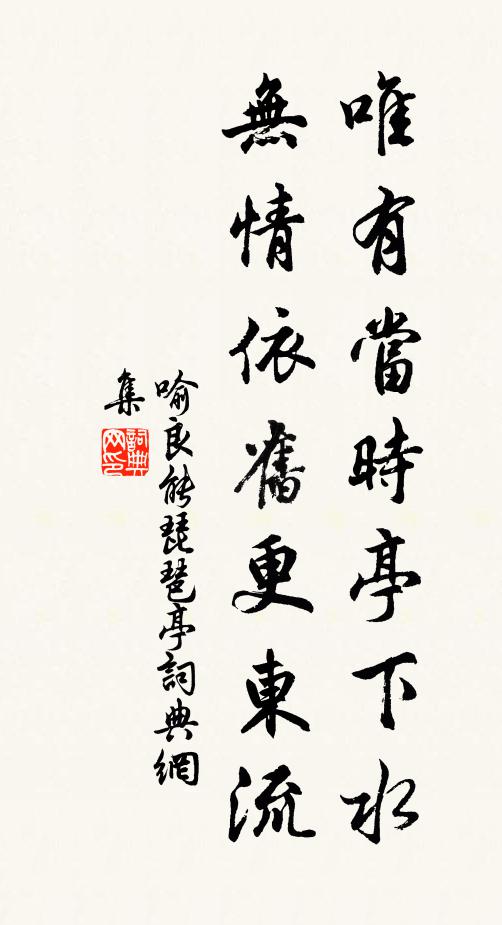 唯有當時亭下水
無情依舊更東流
喻良能琵琶亭詞典網
集
詞典
网印